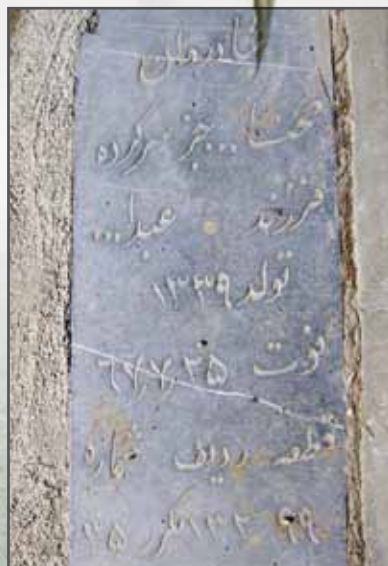 جز سرکرده
فرزند عبدا...
تولد ۱۳۳۹
فوت ۶۷٫۷٫۲۵
قطعه ردیف شماره
۹۹ ۱۳۲مکرر ۳۵